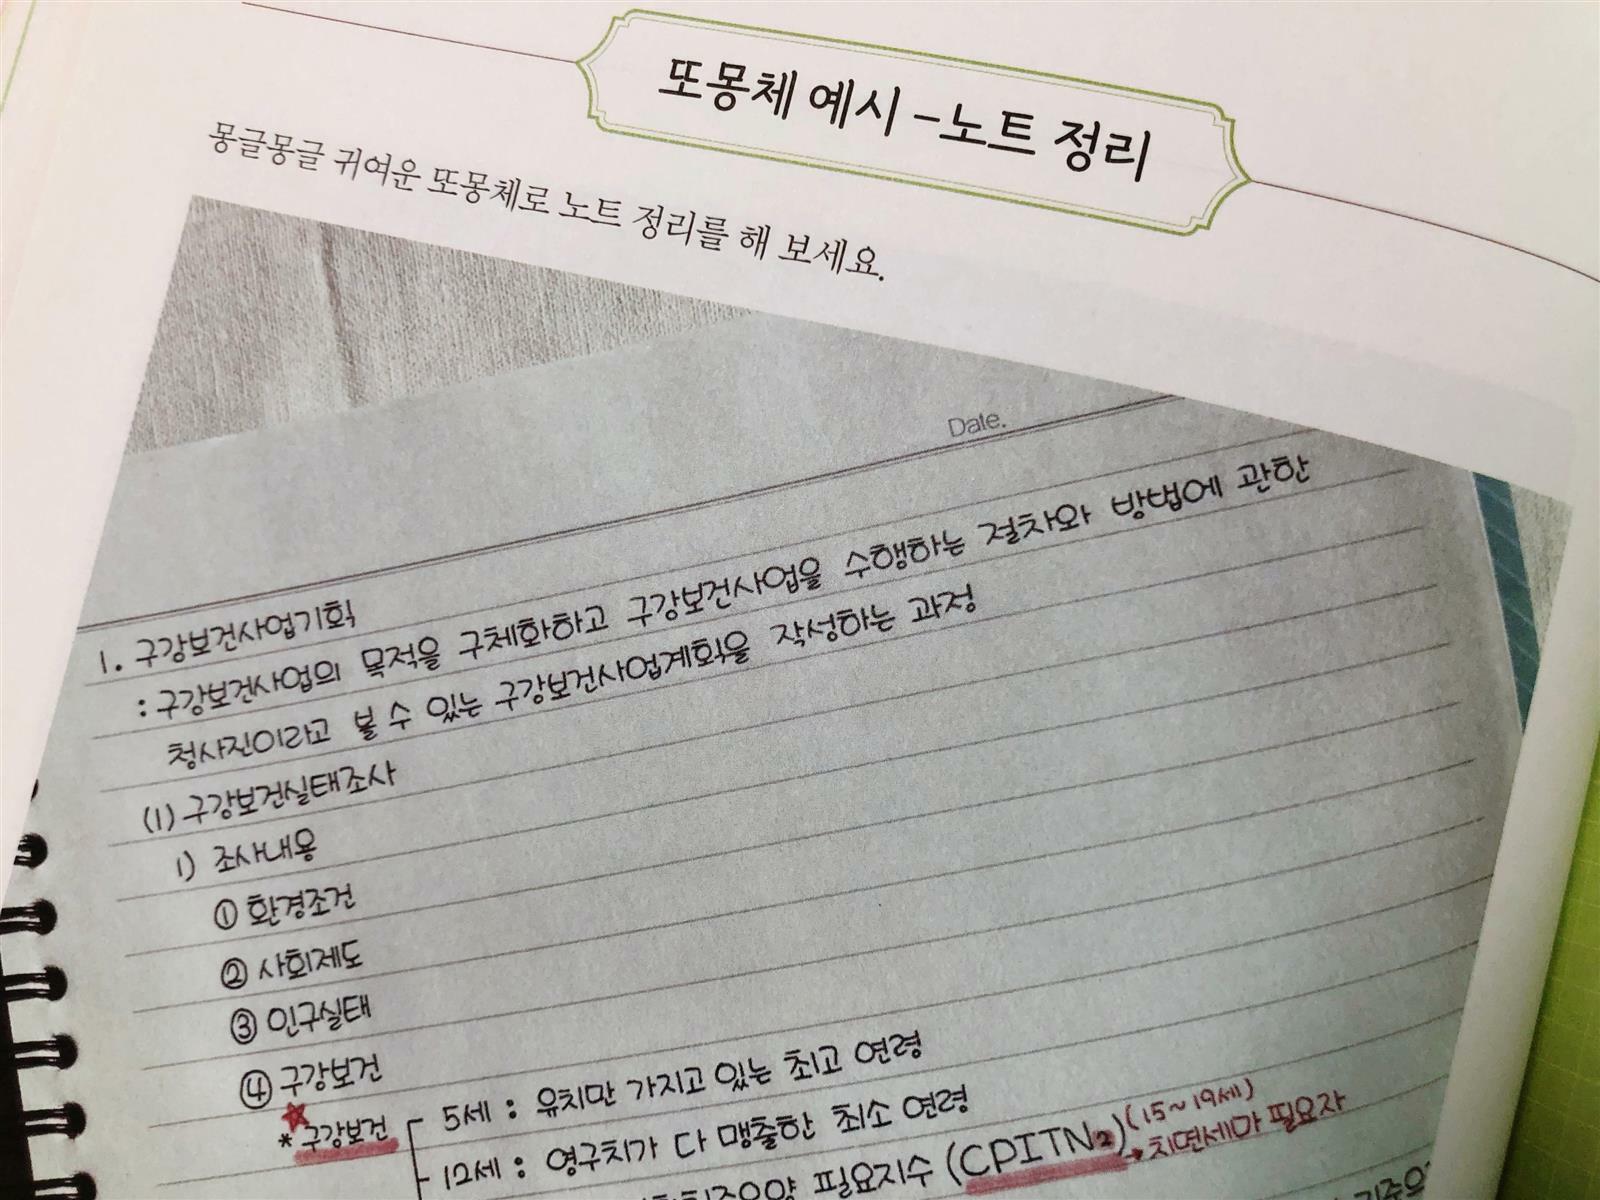 또몽체 예시 -노트 정리
몽글몽글 귀여운 또몽체로 노트 정리를 해 보세요.
Date.
1. 구강보건사업기획
: 구강보건사업의 목적을 구체화하고 구강보건사업을 수행하는 절차와 방법에 관한
청사진이라고 볼 수 있는 구강보건사업계획을 작성하는 과정
(1) 구강보건실태조사
1) 조사내용
① 환경조건
② 사회제도
③ 인구실태
④ 구강보건
* 구강보건
5세 : 유치만 가지고 있는 최고 연령
12세 : 영구치가 다 맹출한 최소 연령
(15~19세)
필요지수 (CPITN2)
→ 치면세마 필요자